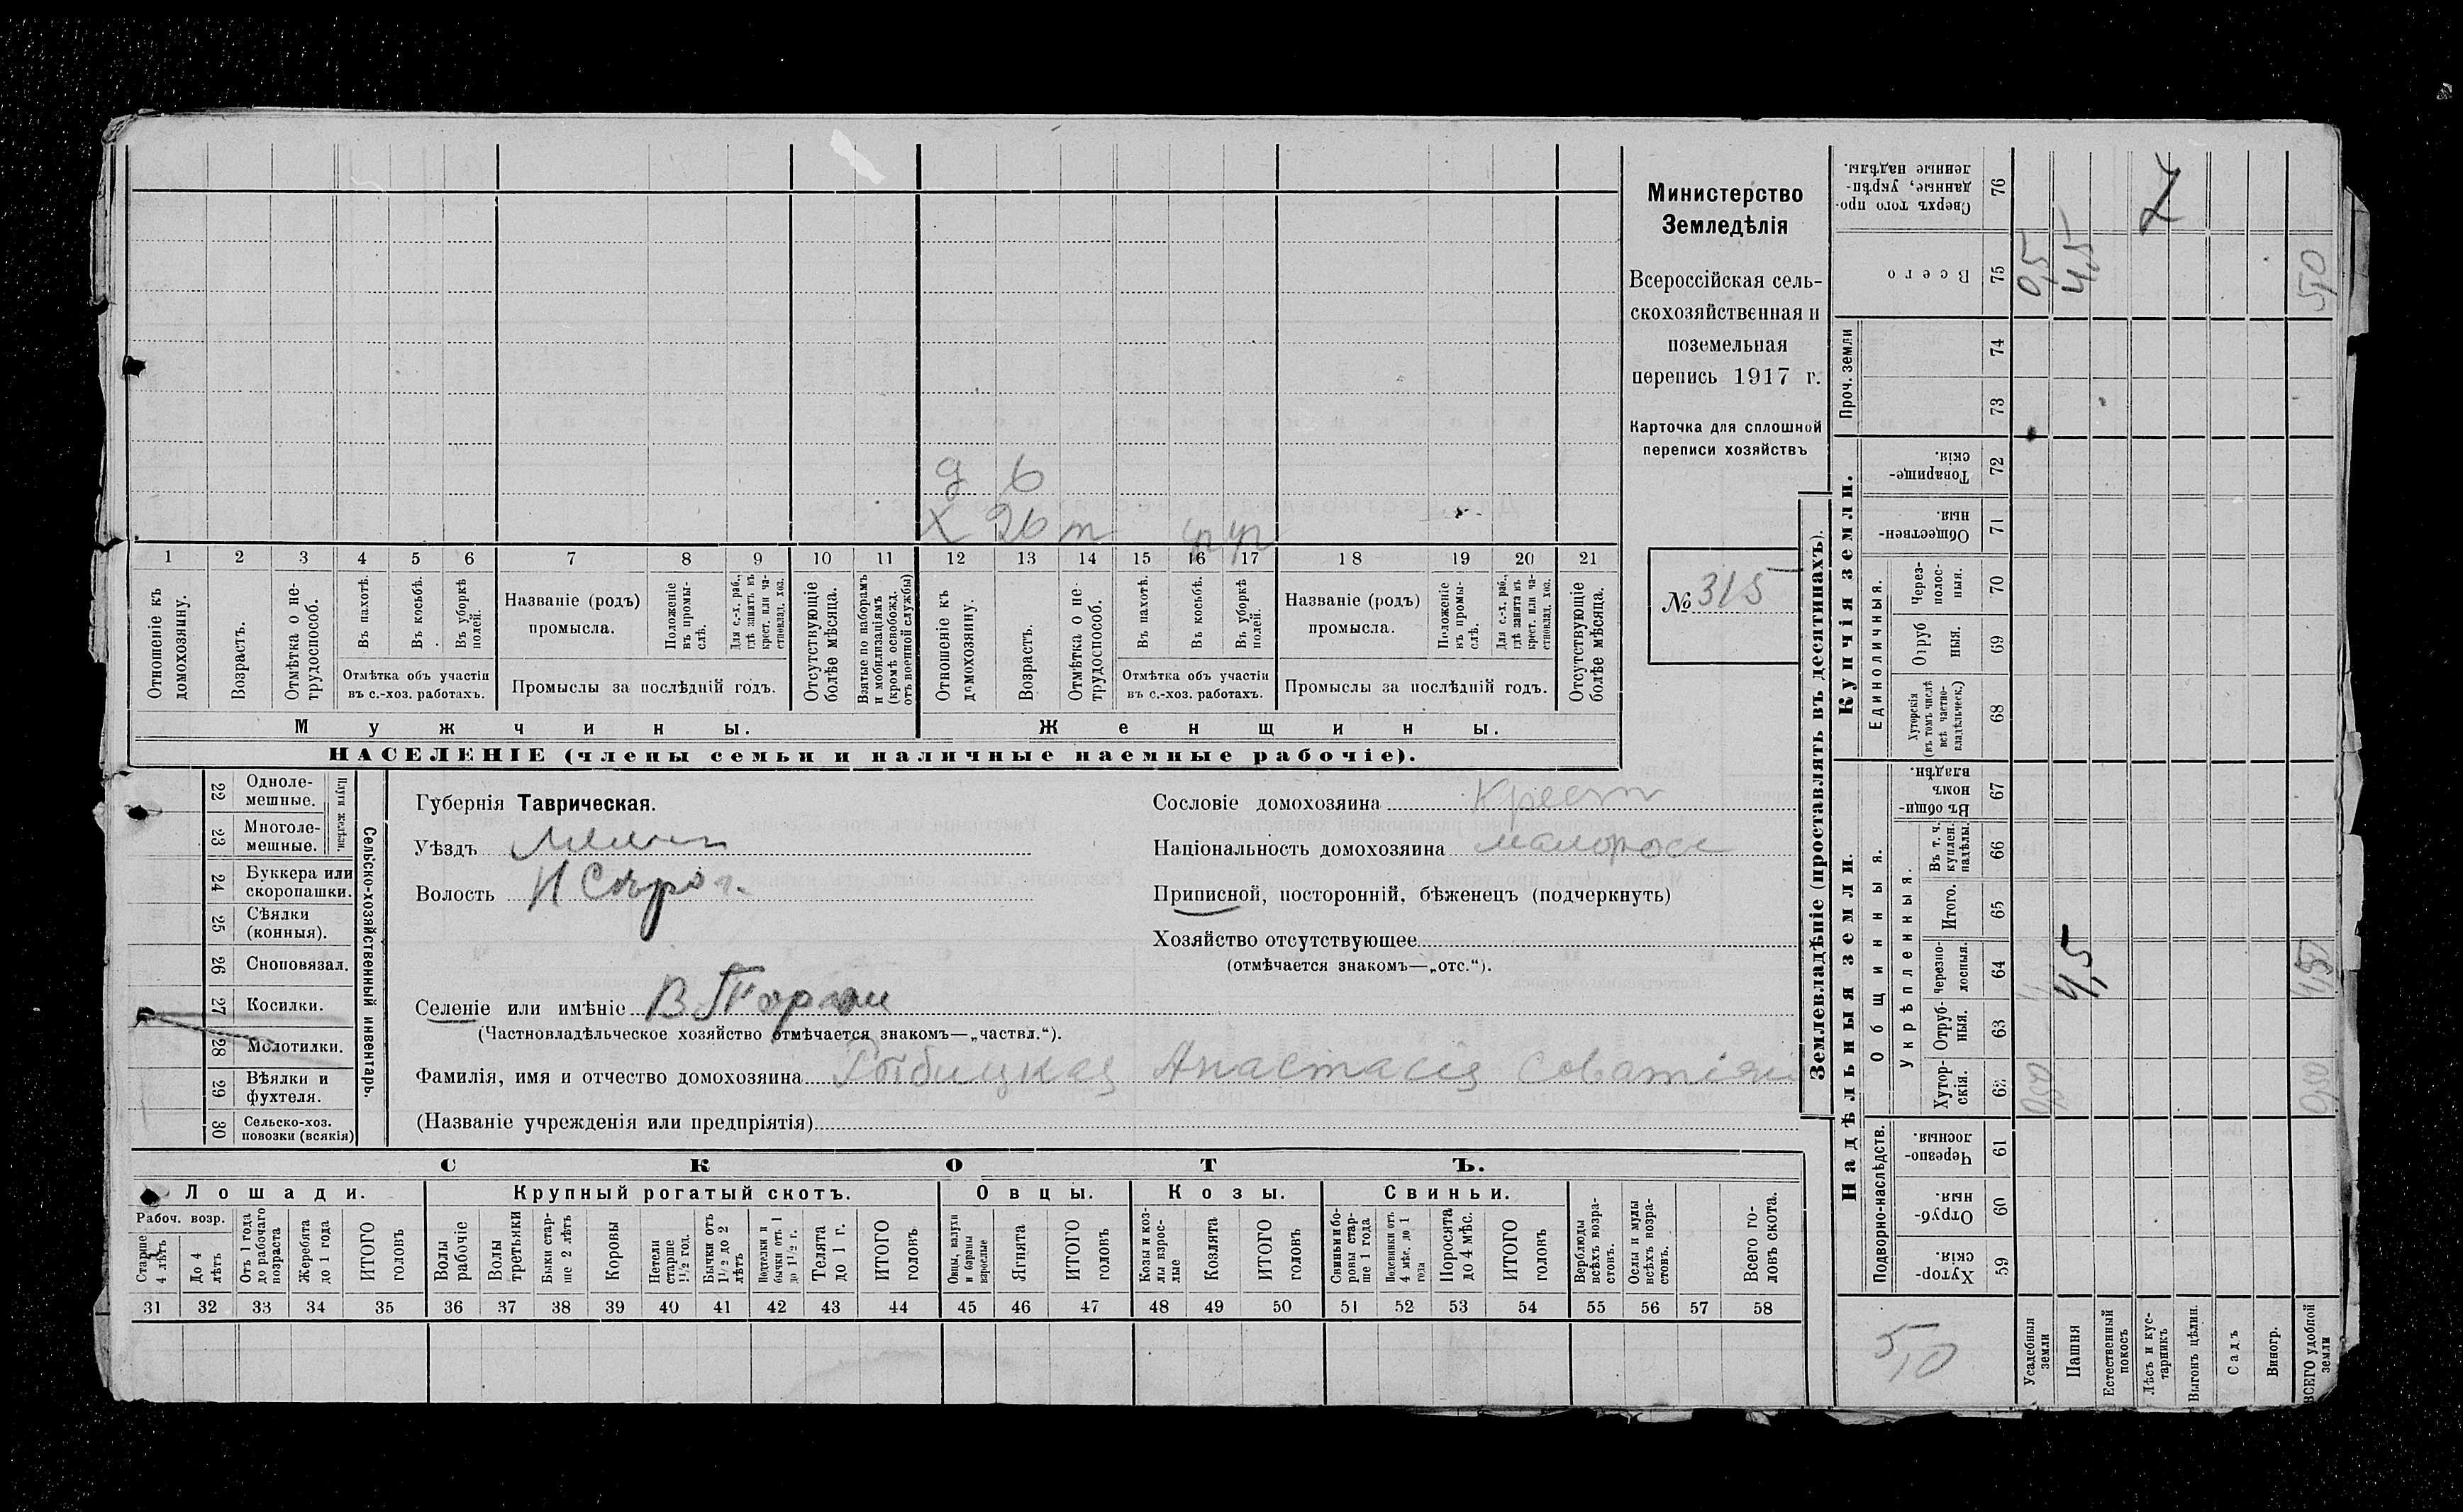 Министерство
Земледѣлія
Всероссійская сель-
скохозяйственная и
поземельная
перепись 1917 г.
Карточка для сплошной
переписи хозяйствъ
№ 315
д 6
х 26 т
1 2 3 4 5 6 7 8 9 10 11 12 13 14 15 16 17 18 19 20 21
Отношеніе къ домохозяину.
Возрастъ.
Отмѣтка о не-трудоспособ.
Въ пахотѣ.
Въ косьбѣ.
Въ уборкѣ полей.
Отмѣтка объ участіи
въ с.-хоз. работахъ.
Названіе (родъ)
промысла.
Положеніе въ промы-слѣ.
Для с.-х. раб., гдѣ занятъ въ крест. или ча-стновлад. хоз.
Промыслы за послѣдній годъ.
Отсутствующіе болѣе мѣсяца.
Взятые по наборамъ и мобилизаціямъ (кромѣ освобожд. отъ военной службы)
Отношеніе къ домохозяину.
Возрастъ.
Отмѣтка о не-трудоспособ.
Въ пахотѣ.
Въ косьбѣ.
Въ уборкѣ полей.
Отмѣтка объ участіи
въ с.-хоз. работахъ.
Названіе (родъ)
промысла.
Положеніе въ промы-слѣ.
Для с.-х. раб., гдѣ занята въ крест. или ча-стновлад. хоз.
Промыслы за послѣдній годъ.
Отсутствующіе болѣе мѣсяца.
Мужчины.
Женщины.
НАСЕЛЕНІЕ (члены семьи и наличные наемные рабочіе).
22 Одноле-мешные.
23 Многоле-мешные.
Плуги желѣзн.
24 Буккера или скоропашки.
25 Сѣялки (конныя).
26 Сноповязал.
27 Косилки.
28 Молотилки.
29 Вѣялки и фухтеля.
30 Сельско-хоз. повозки (всякія)
Сельско-хозяйственный инвентарь.
Губернія Таврическая.
Уѣздъ
Волость
Селеніе или имѣніе
(Частновладѣльческое хозяйство отмѣчается знакомъ—„частвл.“).
Фамилія, имя и отчество домохозяина Рыбицкая Анастасія
(Названіе учрежденія или предпріятія)
Сословіе домохозяина Крест
Національность домохозяина малоросс
Приписной, посторонній, бѣженецъ (подчеркнуть)
Хозяйство отсутствующее
(отмѣчается знакомъ—„отс.“).
СКОТЪ.
Лошади.
Крупный рогатый скотъ.
Овцы.
Козы.
Свиньи.
Рабоч. возр.
Старше 4 лѣтъ
До 4 лѣтъ
Отъ 1 года до рабочаго возраста
Жеребята до 1 года
ИТОГО головъ
Волы рабочіе
Волы третьяки
Быки стар-ше 2 лѣтъ
Коровы
Нетели старше 1½ год.
Бычки отъ 1½ до 2 лѣтъ
Подтелки и бычки отъ 1 до 1½ г.
Телята до 1 г.
ИТОГО головъ
Овцы, валухи и бараны взрослые
Ягнята
ИТОГО головъ
Козы и коз-лы взрос-лые
Козлята
ИТОГО головъ
Свиньи и бо-ровы стар-ше 1 года
Подсвинки отъ 4 мѣс. до 1 года
Поросята до 4 мѣс.
ИТОГО головъ
Верблюды всѣхъ возра-стовъ.
Ослы и мулы всѣхъ возра-стовъ.
Всего го-ловъ скота.
31 32 33 34 35 36 37 38 39 40 41 42 43 44 45 46 47 48 49 50 51 52 53 54 55 56 57 58
Землевладѣніе (проставлять въ десятинахъ).
Надѣльныя земли.
Купчія земли.
Проч. земли
Подворно-наслѣдств.
Общинныя.
Укрѣпленныя.
Единоличныя.
Хутор-скія. 59
Отруб-ныя. 60
Черезпо-лосныя. 61
Хутор-скія. 62
Отруб-ныя. 63
Черезпо-лосныя. 64
Итого. 65
Въ т. ч. куплен. надѣлы. 66
Въ общин-номъ владѣн. 67
Хуторскія (въ томъ числѣ всѣ частно-владѣльческ.) 68
Отруб ныя. 69
Через-полос-ныя. 70
Обществен-ныя. 71
Товарище-скія. 72
73
74
Всего 75
Сверхъ того про-данные, укрѣп-ленные надѣлы. 76
Усадебныя земли 0,50 0,5
Пашня 4,5 4,5
Естественный покосъ
Лѣсъ и кус-тарникъ
Выгонъ цѣлин.
Садъ
Виногр.
ВСЕГО удобной земли 0,50 4,50 5,0
5,0